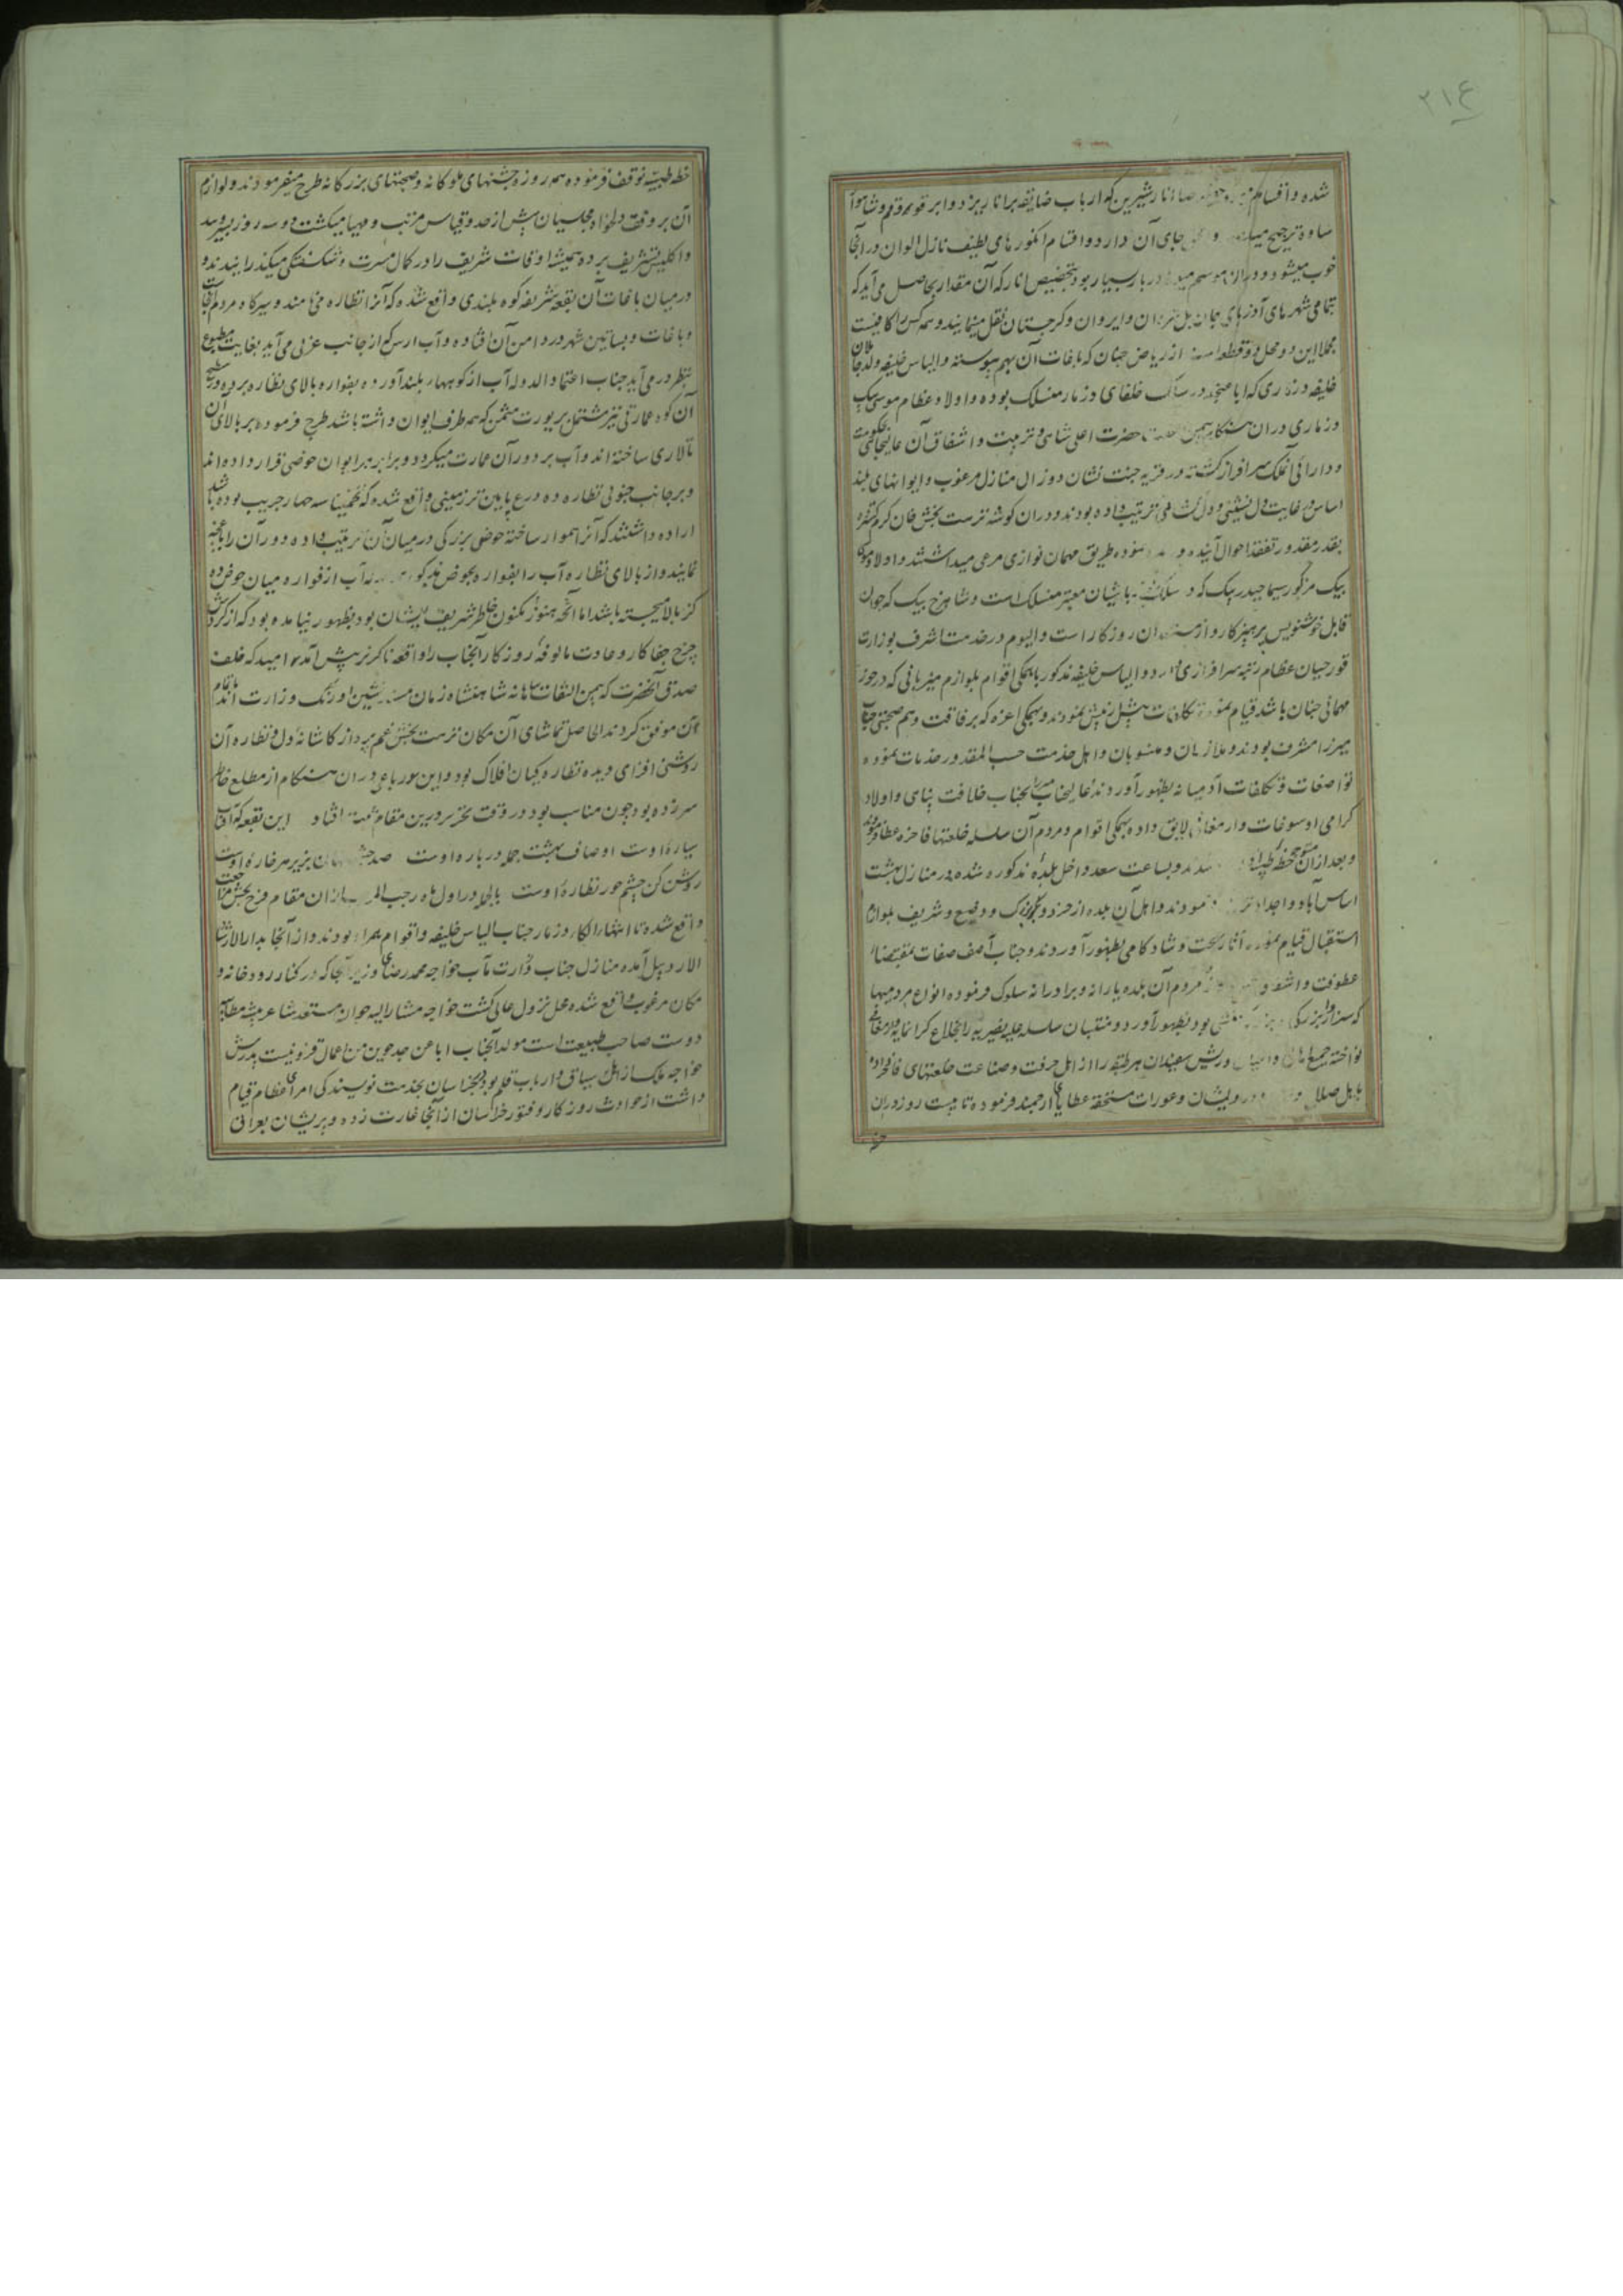 ۲۱۴
شده و اقسام انار شیرین که ارباب ضایقه بر انار یزد و ابرقوه و قم و
ساوه ترجیح جای آن دارد و اقسام انگورهای لطیف نازل الوان در آنجا
خوب میشود و در موسم میوه بسیار بود بتخصیص انار که آن مقدار بحاصل می آید که
تمامی شهرهای آذربایجان بل و ایروان و گرجستان نقل مینمایند و همه کس را کافیست
مجملا این دو محل دو قطعه از ریاض جنان که باغات آن بهم پیوسته و الیاس خلیفه ولد
خلیفه وزماری که اباعنجد در سلک خلفای وزمار منسلک بوده و اولاد عظام موسی بیک
وزماری در ان هنگام بیمن حضرت اعلی شاهی و تربیت و اشفاق آن
و دارائی آنملک سرافراز گشته در قریه جنت نشان دوزال منازل مرغوب و ایوانهای بلند
اساس در غایت دل نشینی ترتیب داده بودند و در ان گوشه نزهت بخش خان کرم گستر
بقدر مقدور تفقد احوال آینده و نموده طریق مهمان نوازی مرعی میداشتند و اولاد موسی
بیک مزکور سیما حیدر بیک که در معتبر منسلک است و شاهرخ بیک که جوان
قابل خوشنویس پرهیزکار و از روزگار است و الیوم در خدمت اشرف بوزارت
قورچیان عظام رتبه سرافرازی دارد و الیاس خلیفه مذکور با همگی اقوام بلوازم میزبانی که در خور
مهمانی چنان باشد قیام نموده تکلفات پیش از پیش نمودند و همگی اعزه که برفاقت و هم صحبتی جناب
میرزا مشرف بودند و ملازمان و منسوبان و اهل خدمت حسب المقدور خدمات نموده
تواضعات و تکلفات آدمیانه بظهور آوردند عالیجناب بجناب خلافت پناهی و اولاد
گرامی او سوغات و ارمغانی لایق داده بهمگی اقوام و مردم آن سلسله خلعتهای فاخره عطا فرمود
و بعد از آن متوجه خطه طیبه شدند و بساعت سعد داخل بلده مذکوره شده در منازل بهشت
اساس آبا و اجداد نمودند و اهل آن بلده از خرد و بزرگ و وضیع و شریف بلوازم
استقبال قیام نموده آثار بهجت و شادکامی بظهور آوردند و جناب آصف صفات بمقتضای
عطوفت و اشفاق مردم آن بلده یارانه و برادرانه سلوک فرموده انواع مردمیها
که سزاوار بزرگی بود بظهور آورد و منتسبان سلسله علیه نصیریه را بخلاع گرانمایه و ارمغانی
نواخته جمیع اهالی و اعیان و ریش سفیدان هر طبقه را از اهل حرفت و صناعت خلعتهای فاخر داده
باهل صلاح و درویشان و عورات مستحقه عطایای ارجمند فرموده تا بیست روز در ان
خطه طیبه توقف فرموده هر روزه جشنهای ملوکانه و صحبتهای بزرگانه طرح میفرمودند و لوازم
آن بر وفق دلخواه مجلسیان بیش از حد و قیاس مرتب و مهیا میگشت و دو سه روز بسیر
و تشریف برده همیشه اوقات شریف را در کمال مسرت و شکفتگی میگذرانیدند و
در میان باغات آن بقعه شریفه کوه بلندی واقع شده که آنرا نظاره می نامند و سیرگاه مردم
و باغات و بساتین شهر در دامن آن افتاده و آب ارس که از جانب غربی می آید بغایت مطبوع
بنظر در می آید جناب اعتماد الدوله آب از کوهسار بلند آورده بفواره بالای نظاره برده و بر سطح
آن کوه عمارتی نیز مشتمل بر یورت مثمن که هر طرف ایوان داشته باشد طرح فرموده بر بالای آن
تالاری ساخته اند و آب بر دور آن عمارت میگردد و برابر هر ایوان حوضی قرار داده اند
و بر جانب جنوبی نظاره ده ذرع پایین تر زمینی واقع شده که تخمینا سه چهار جریب بوده باشد
اراده داشتند که آنرا هموار ساخته حوضی بزرگی در میان آن ترتیب داده دور آن را باغچه
نمایند و از بالای نظاره آب را بفواره بحوض مذکور آب از فواره میان حوض ده
گز بالا میجسته باشد اما آنچه هنوز مکنون خاطر شریف ایشان بود بظهور نیامده بود که از گردش
چرخ جفاکار و عادت مالوفه روزگار آنجناب را واقعه ناگزیر پیش آمد امید که خلف
صدق آنحضرت که بیمن التفات شاهانه شاهنشاه زمان مسند نشین اورنگ وزارت اند
آن موفق گردند الحاصل تماشای آن مکان نزهت بخش غم پرداز کاشانه دل و نظاره آن
روشنی افزای دیده نظاره گیان افلاک بود و این دو رباعی در ان هنگام از مطلع خاطر
سر زده بود چون مناسب بود در وقت تحریر درین مقام ثبت افتاد این بقعه که آفتاب
سیاره اوست اوصاف بهشت جمله درباره اوست صد بزیر هر خاره اوست
روشن کن چشم حور نظاره اوست بالجمله در اول ماه رجب المرجب از ان مقام فرح بخش مراجعت
واقع شده تا انتهاء الکاء وزمار جناب الیاس خلیفه و اقوام همراه بودند و از آنجا بدار الارشاد
الاردبیل آمده منازل جناب وزارت مآب خواجه محمد رضای وزیر آنجا که در کنار رودخانه و
مکان مرغوب واقع شده محل نزول عالی گشت خواجه مشارالیه جوان مستعد شاعر پیشه
دوست صاحب طبیعت است مولد آنجناب اباعن جد جوین من اعمال قزوینیست پدرش
خواجه ملک از اهل سیاق و ارباب قلم بود بخراسان بخدمت نویسندگی امرای عظام قیام
داشت از حوادث روزگار و فتور خراسان از آنجا غارت زده و پریشان بعراق